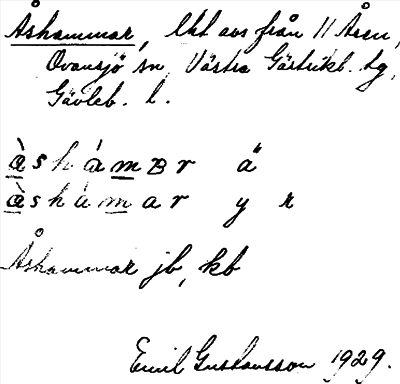 Åshammar, lkt avs från 11 Åsen,
Ovansjö sn, Västra Gästrikl. tg,
Gävleb. l.
àshámʙr å
àshámar y r
Åshammar jb, kb
Emil Gustavsson 1929.